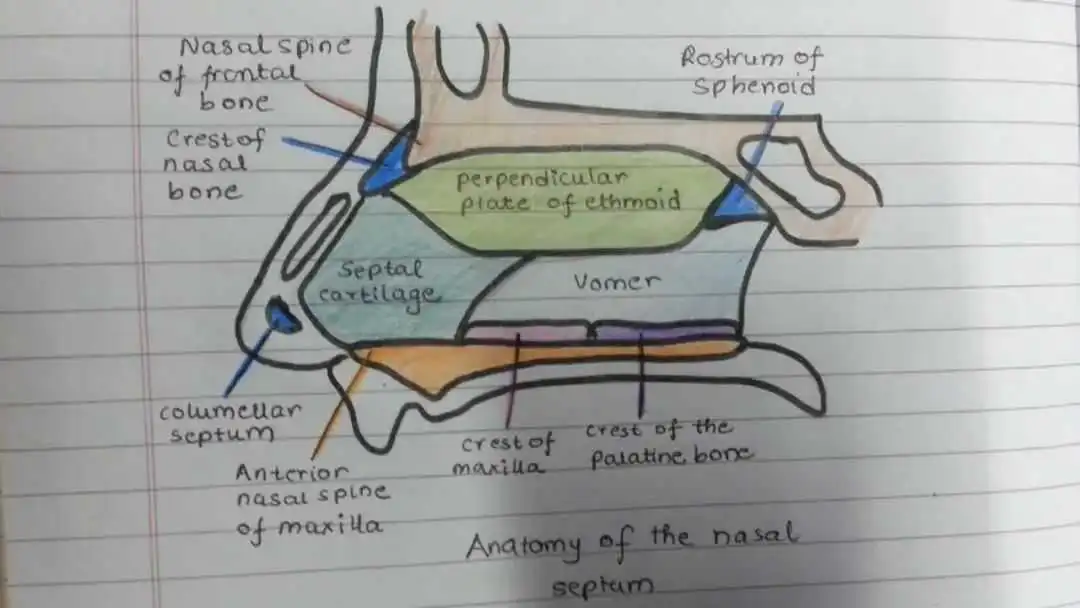 Nasal spine
of frontal
bone
Crest of
nasal
bone
Rostrum of
sphenoid
perpendicular
plate of ethmoid
Septal
cartilage
Vomer
columellar
septum
Anterior
nasal spine
of maxilla
crest of
maxilla
crest of the
palatine bone
Anatomy of the nasal
septum